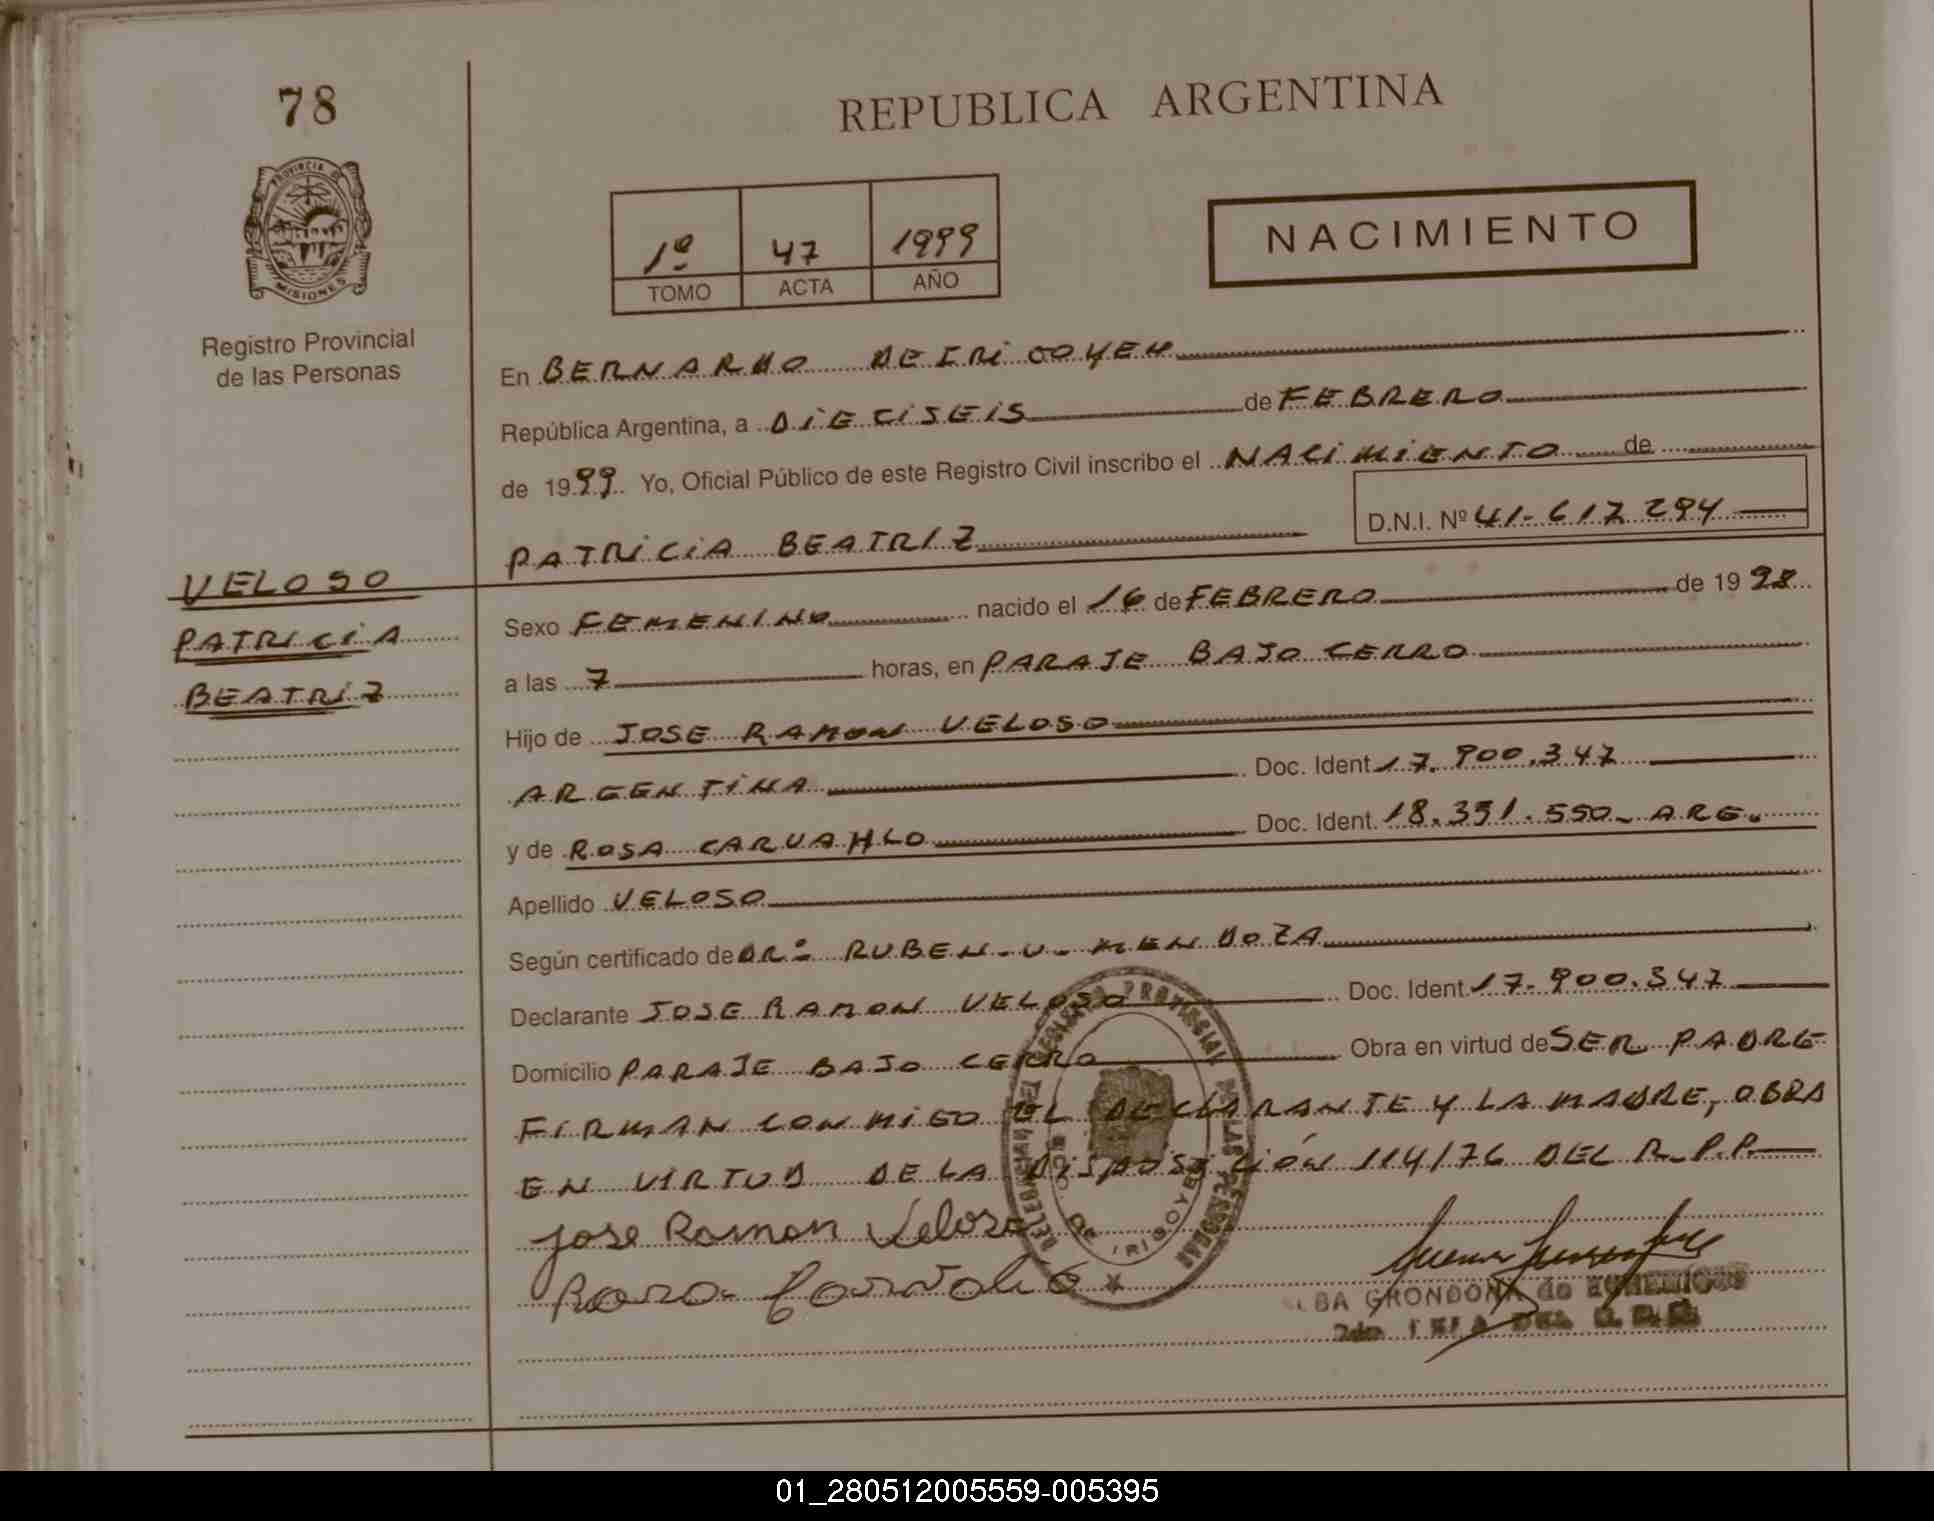 78
REPUBLICA ARGENTINA
PROVINCIA DE
MISIONES
Registro Provincial
de las Personas
1º 47 1999
TOMO ACTA AÑO
NACIMIENTO
En BERNARDO DE IRIGOYEN
República Argentina, a DIECISEIS de FEBRERO
de 1999 Yo, Oficial Público de este Registro Civil inscribo el NACIMIENTO de
D.N.I. Nº 41-617294
PATRICIA BEATRIZ
VELOSO
PATRICIA
BEATRIZ
Sexo FEMENINO nacido el 16 de FEBRERO de 1998
a las 7 horas, en PARAJE BAJO CERRO
Hijo de JOSE RAMON VELOSO
ARGENTINA Doc. Ident 17.900.347
y de ROSA CARVAHLO Doc. Ident. 18.391.550- ARG.
Apellido VELOSO
Según certificado de DR: RUBEN-U-MENDOZA
Declarante JOSE RAMON VELOSO Doc. Ident. 17-900.347
Domicilio PARAJE BAJO CERRO Obra en virtud de SER PADRE
FIRMAN CONMIGO EL DECLARANTE Y LA MADRE, OBRA
EN VIRTUD DE LA DISPOSICIÓN 114/76 DEL R.P.P.
Jose Ramon Veloso
Rosa
REGISTRO PROVINCIAL DE LAS PERSONAS
DELEGACION
BDO. DE IRIGOYEN
GRONDONA de
2do JEFA DEL
01_280512005559-005395